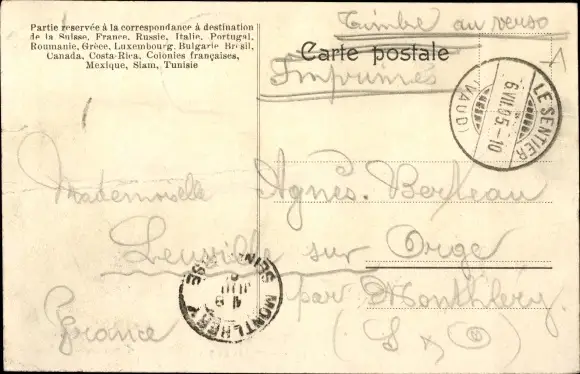 Partie reservée à la correspondance à destination
de la Suisse, France, Russie, Italie, Portugal,
Roumanie, Grèce, Luxembourg, Bulgarie Brésil,
Canada, Costa-Rica, Colonies françaises,
Mexique, Siam, Tunisie
Timbre au verso
Carte postale
Imprimés
LE SENTIER
6.VII.05.-10
(VAUD)
Mademoiselle Agnès. Berteau
Leuville sur Orge
par Monthléry.
France (S & O)
MONTLHERY
SEINE